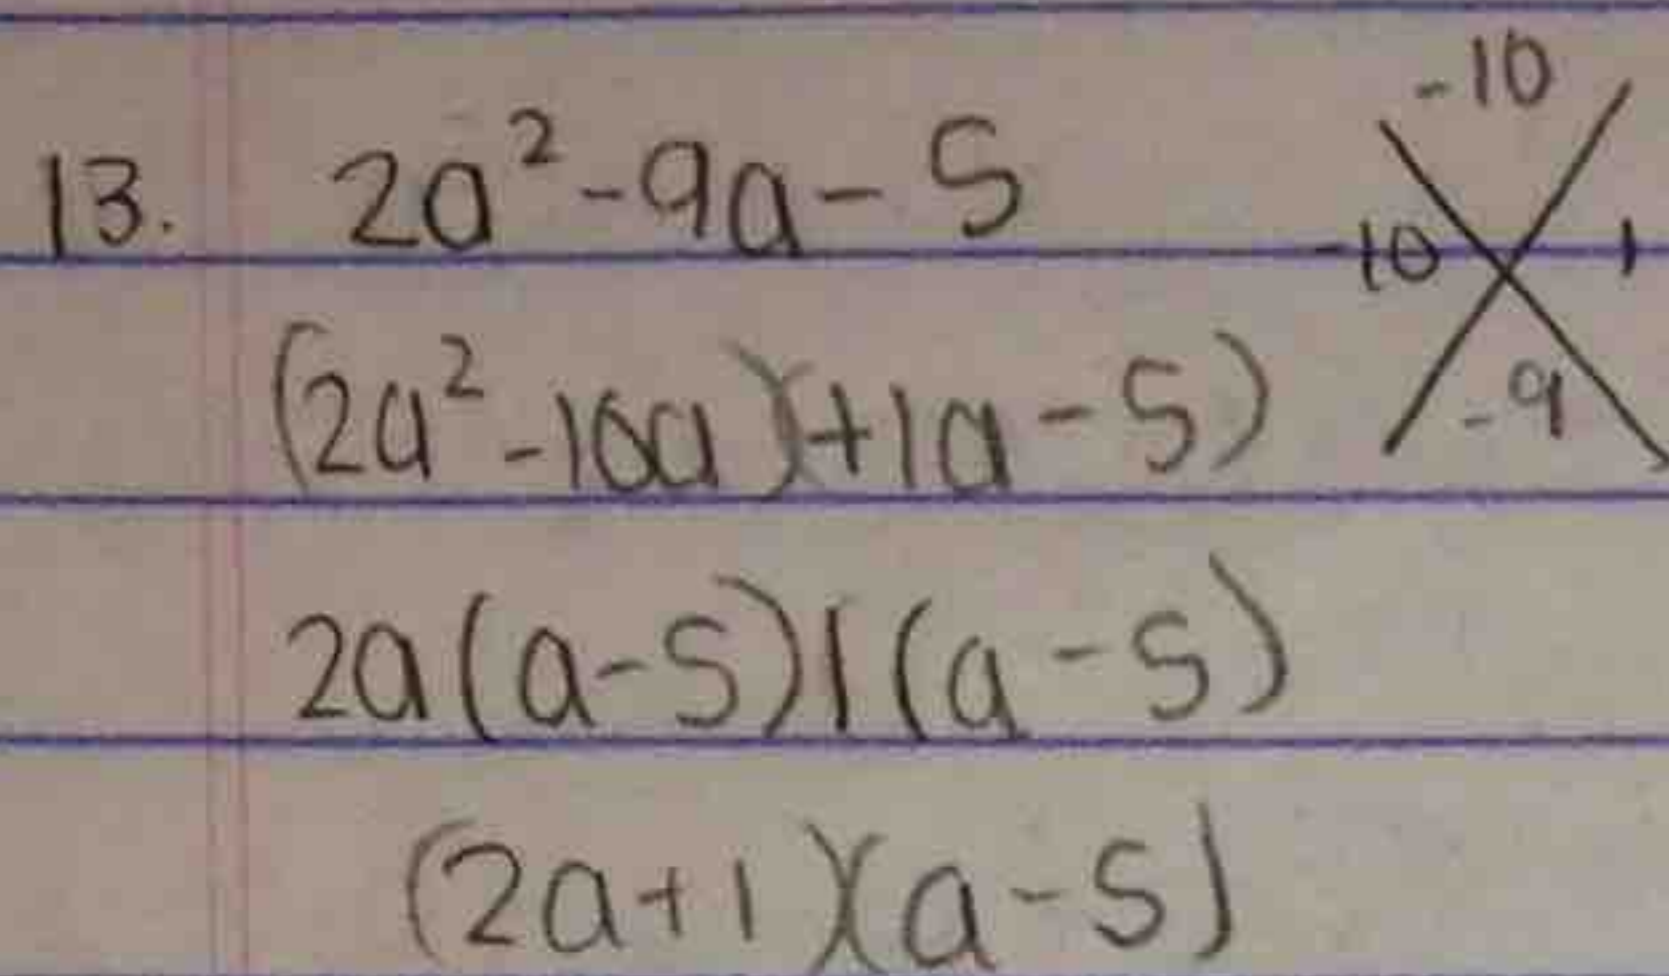 13. 2a²-9a-5
-10
-10 1
-9
(2a²-10a)(+1a-5)
2a(a-5)1(a-5)
(2a+1)(a-5)